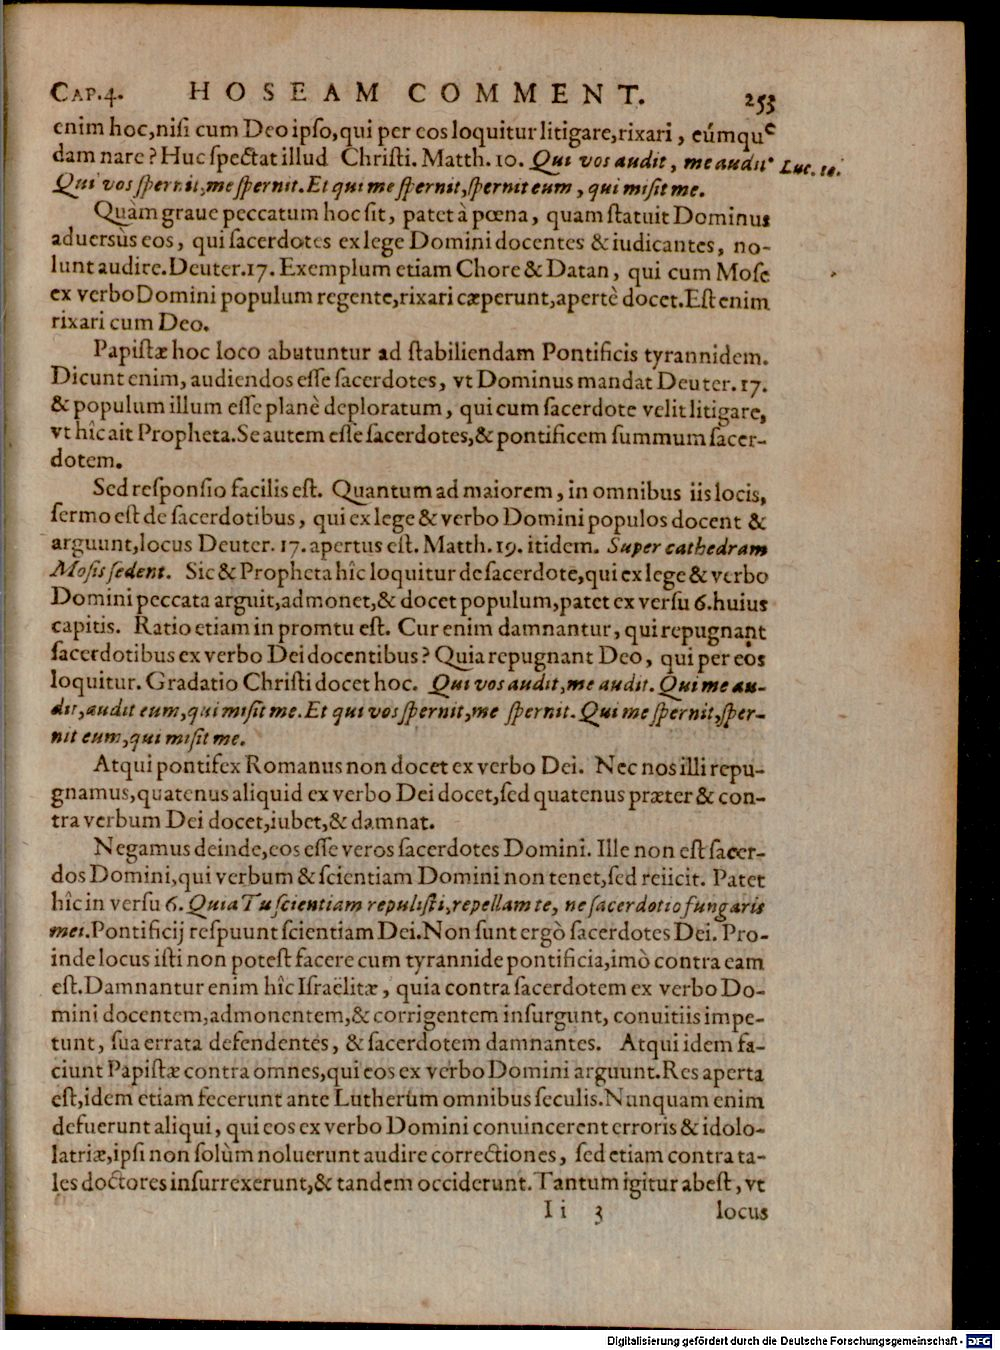 CAP.4. HOSEAM COMMENT. 253
enim hoc, niſi cum Deo ipſo, qui per eos loquitur litigare, rixari, eúmque
damnare? Huc ſpectat illud Chriſti. Matth. 10. Qui vos audit, me audit. Luc. 10.
Qui vos ſpernit, me ſpernit. Et qui me ſpernit, ſpernit eum, qui miſit me.
Quàm graue peccatum hoc ſit, patet à pœna, quam ſtatuit Dominus
aduersùs eos, qui ſacerdotes ex lege Domini docentes & iudicantes, no-
lunt audire. Deuter. 17. Exemplum etiam Chore & Datan, qui cum Moſe
ex verbo Domini populum regente, rixari cæperunt, apertè docet. Eſt enim
rixari cum Deo.
Papiſtæ hoc loco abutuntur ad ſtabiliendam Pontificis tyrannidem.
Dicunt enim, audiendos eſſe ſacerdotes, vt Dominus mandat Deuter. 17.
& populum illum eſſe planè deploratum, qui cum ſacerdote velit litigare,
vt hîc ait Propheta. Se autem eſſe ſacerdotes, & pontificem ſummum ſacer-
dotem.
Sed reſponſio facilis eſt. Quantum ad maiorem, in omnibus iis locis,
ſermo eſt de ſacerdotibus, qui ex lege & verbo Domini populos docent &
arguunt, locus Deuter. 17. apertus eſt. Matth. 19. itidem. Super cathedram
Moſis ſedent. Sic & Propheta hîc loquitur de ſacerdote, qui ex lege & verbo
Domini peccata arguit, admonet, & docet populum, patet ex verſu 6. huius
capitis. Ratio etiam in promtu eſt. Cur enim damnantur, qui repugnant
ſacerdotibus ex verbo Dei docentibus? Quia repugnant Deo, qui per eos
loquitur. Gradatio Chriſti docet hoc. Qui vos audit, me audit. Qui me au-
dit, audit eum, qui miſit me. Et qui vos ſpernit, me ſpernit. Qui me ſpernit, ſper-
nit eum, qui miſit me.
Atqui pontifex Romanus non docet ex verbo Dei. Nec nos illi repu-
gnamus, quatenus aliquid ex verbo Dei docet, ſed quatenus præter & con-
tra verbum Dei docet, iubet, & damnat.
Negamus deinde, eos eſſe veros ſacerdotes Domini. Ille non eſt ſacer-
dos Domini, qui verbum & ſcientiam Domini non tenet, ſed reiicit. Patet
hîc in verſu 6. Quia Tu ſcientiam repuliſti, repellam te, ne ſacerdotio fungaris
mei. Pontificij reſpuunt ſcientiam Dei. Non ſunt ergò ſacerdotes Dei. Pro-
inde locus iſti non poteſt facere cum tyrannide pontificia, imò contra eam
eſt. Damnantur enim hîc Iſraëlitæ, quia contra ſacerdotem ex verbo Do-
mini docentem, admonentem, & corrigentem inſurgunt, conuitiis impe-
tunt, ſua errata defendentes, & ſacerdotem damnantes. Atqui idem fa-
ciunt Papiſtæ contra omnes, qui eos ex verbo Domini arguunt. Res aperta
eſt, idem etiam fecerunt ante Lutherum omnibus ſeculis. Nunquam enim
defuerunt aliqui, qui eos ex verbo Domini conuincerent erroris & idolo-
latriæ, ipſi non ſolùm noluerunt audire correctiones, ſed etiam contra ta-
les doctores inſurrexerunt, & tandem occiderunt. Tantum igitur abeſt, vt
Ii 3 locus
Digitalisierung gefördert durch die Deutsche Forschungsgemeinschaft - DFG